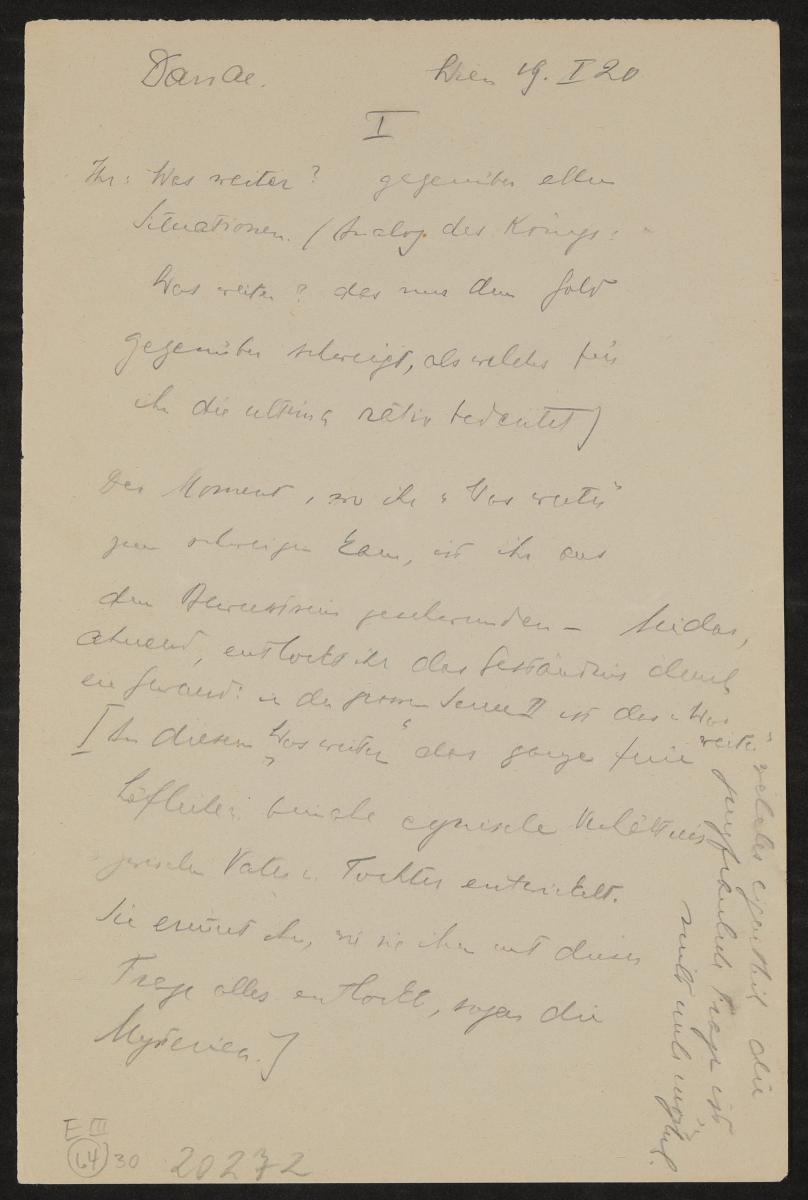 Danae.
Wien 19. I 20
I
Ihr: Was weiter? gegenüber allen
Situationen. (Analog des Königs:
Was weiter? das nur dem Gold
gegenüber schweigt, als welches für
ihn die ultima ratio bedeutet)
Der Moment, wo ihr „Was weiter"
zum schweigen kam, ist ihr aus
dem Bewusstsein geschwunden — Midas,
ahnend, entlockt ihr das Geständnis durch
ein Gewand: in der grossen Scene II ist das „Was
weiter"
[An diesem „Was weiter" das ganze freie
höfliche beinahe cynische Verhältnis
zwischen Vater u. Tochter entwickelt.
Sie erinnert ihn, wie sie ihm mit dieser
Frage alles entlockte, sogar die
Mysterien.]
welches eigentlich die
jungfräuliche Frage ist
nicht mehr möglich.
E III
64 30
20272